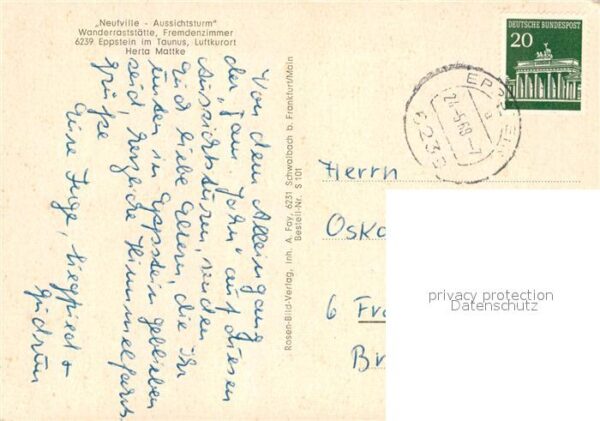 „Neufville - Aussichtsturm"
Wanderraststätte, Fremdenzimmer
6239 Eppstein im Taunus, Luftkurort
Herta Mattke
Von dem Alleingang
der „Fam. John" auf diesen
Aussichtsturm, senden
Euch liebe Eltern, die Ihr
unten in Eppstein geblieben
seid, herzliche Himmelfahrts
grüße
Eure Inge, Siegfried +
Gudrun
Rosen-Bild-Verlag, Inh. A. Fay, 6231 Schwalbach b. Frankfurt/Main
Bestell-Nr. S 101
DEUTSCHE BUNDESPOST
20
EPPSTEIN
a
24-5.68-7
6239
Herrn
Oska
6 Fra
Br
privacy protection
Datenschutz